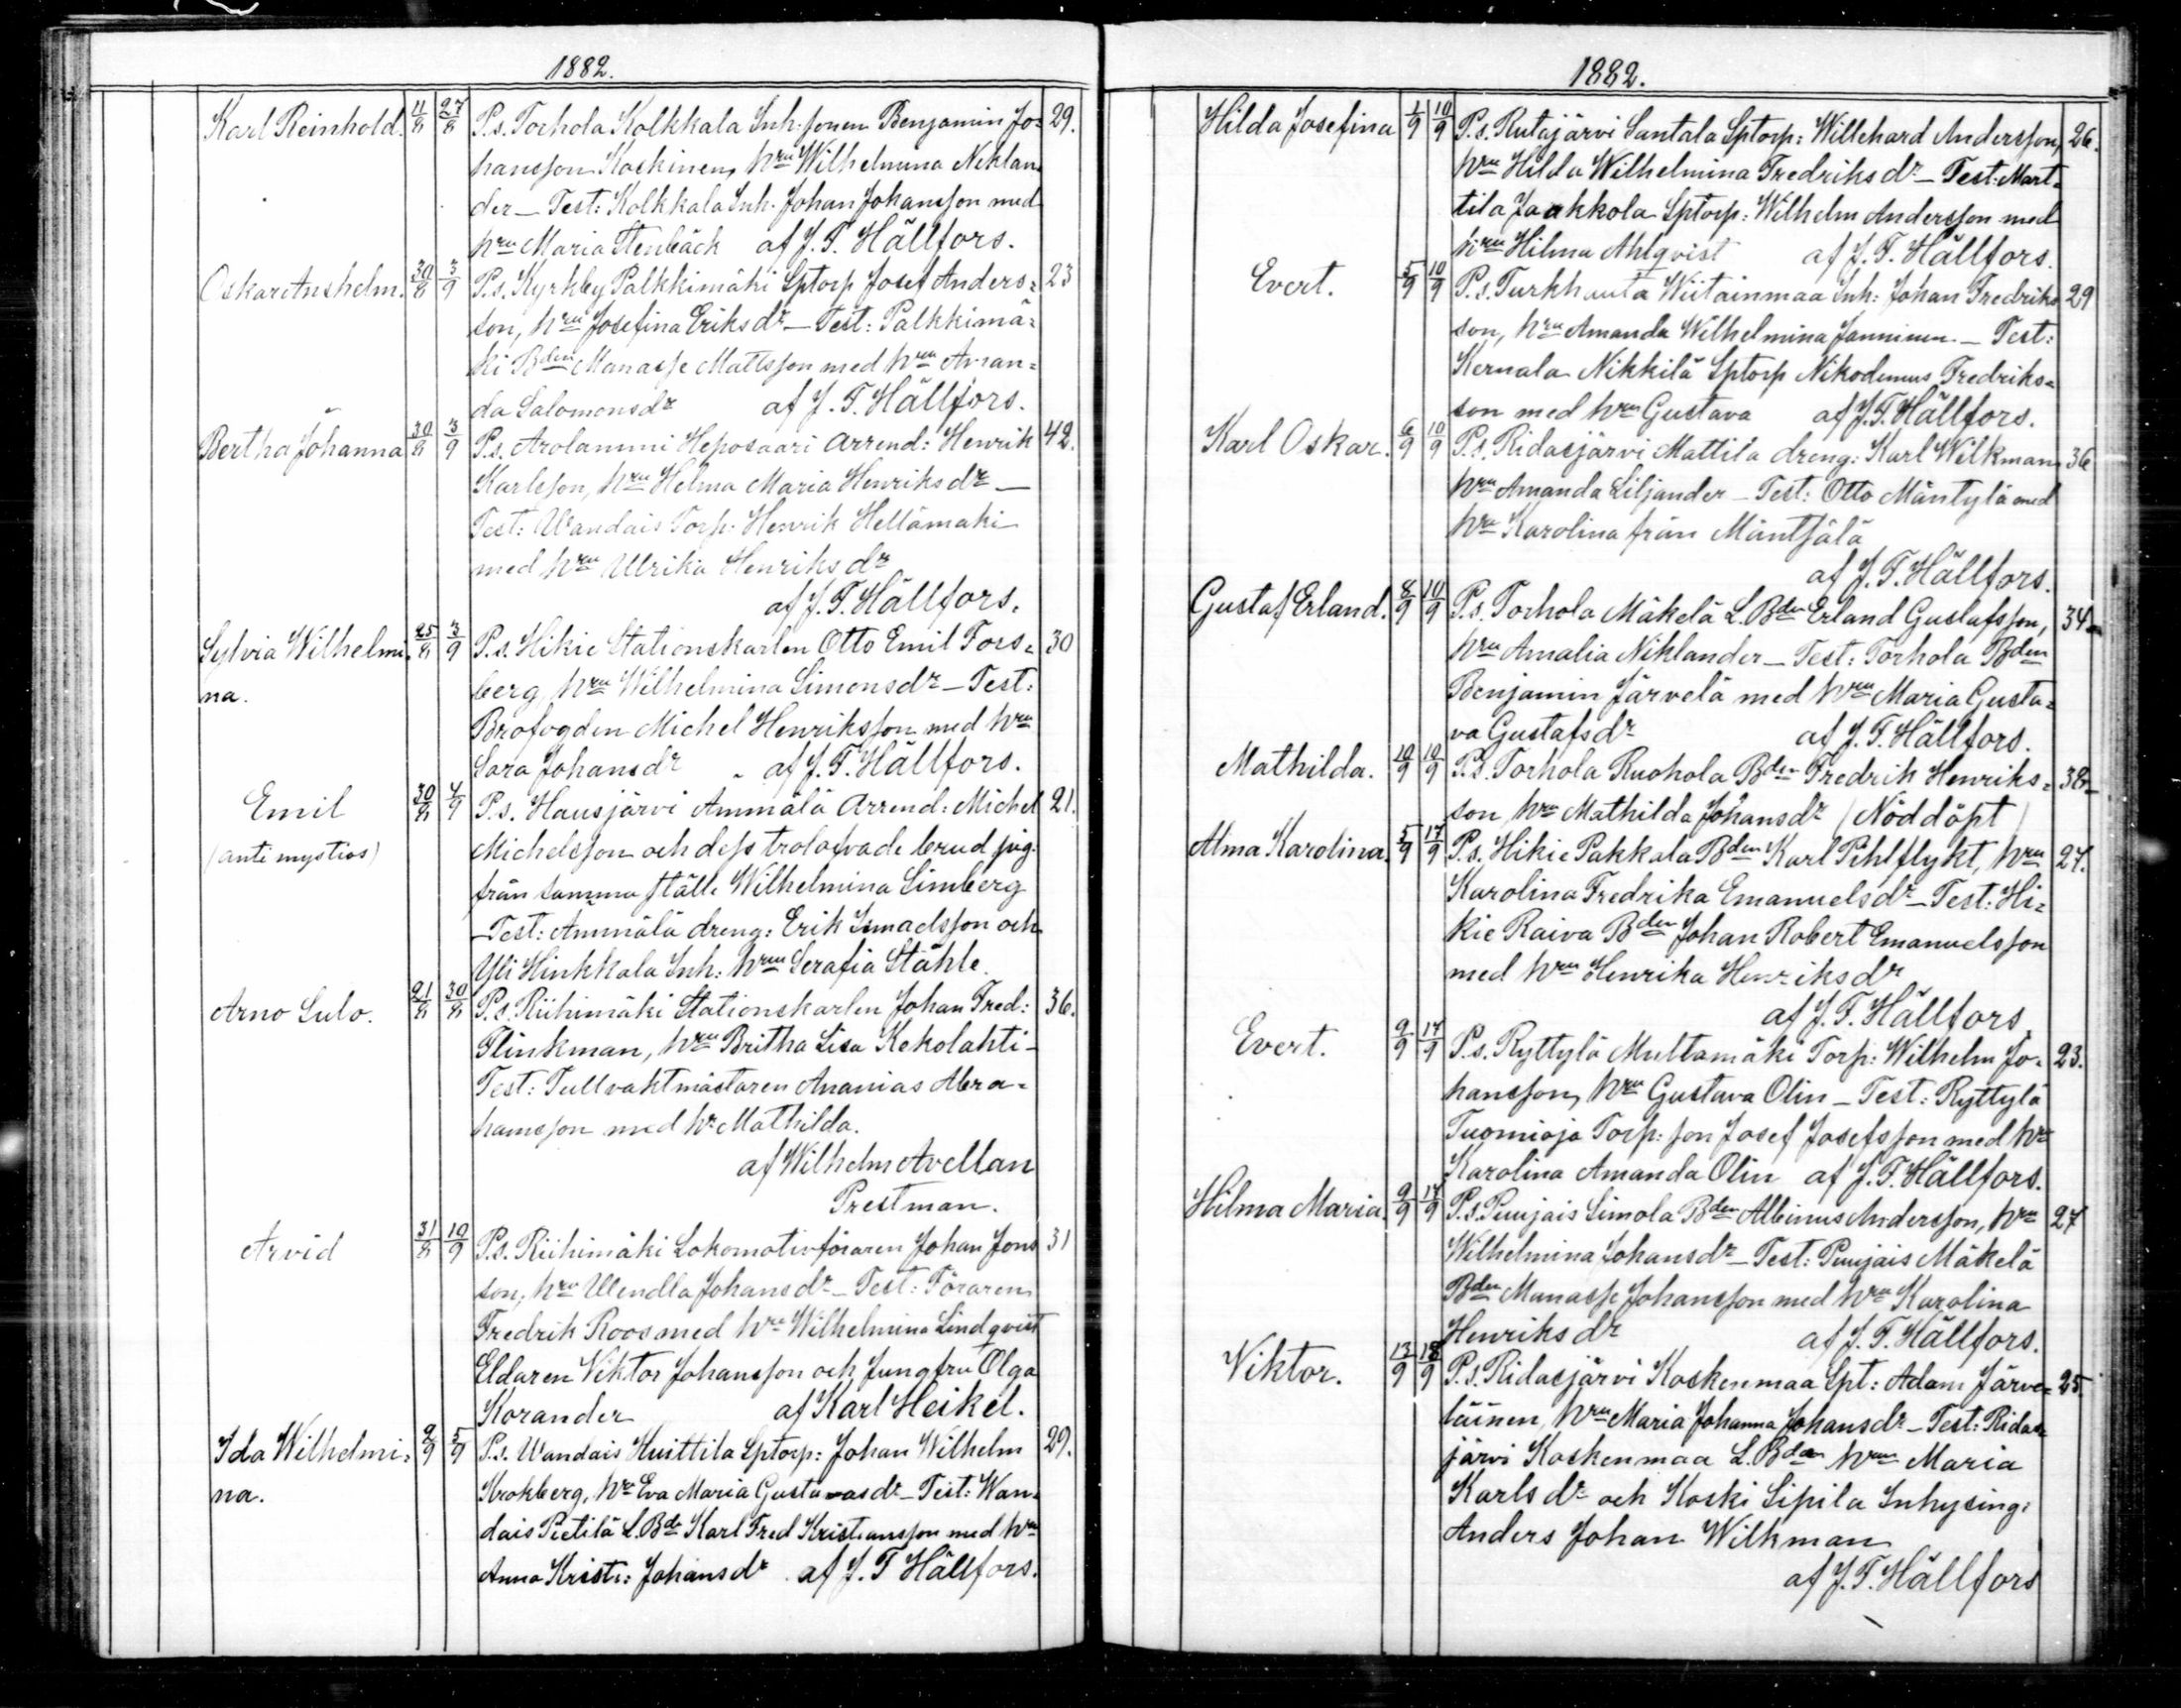 1882.
Karl Reinhold. 11/8 27/8 P.s. Torhola Kolkkala Inh: sonen Benjamin Jo- 29.
hansson Koskinen, hru Wilhelmina Niklan
der — Test: Kolkkala Inh. Johan Johansson med
hru Maria Stenbäck af J. F. Hällfors.
Oskar Anshelm. 30/8 3/9 P.s. Kyrkby Palkkimäki Sptorp Josef Anders= 23
son, hru Josefina Eriksdr — Test: Palkkimä=
ki Bden Manasse Mattsson med hru Aman=
da Salomonsdr af J. F. Hällfors.
Bertha Johanna 30/8 3/9 P.s. Arolammi Heposaari Arrend: Henrik 42.
Karlsson, hru Helma Maria Henriksdr —
Test: Wandais Torp: Henrik Hellämaki
med hru Ulrika Henriksdr
af J. F. Hällfors.
Sylvia Wilhelmi= 25/8 3/9 P.s. Hikie Stationskarlen Otto Emil Fors= 30
na. berg, hru Wilhelmina Simonsdr — Test:
Brofogden Michel Henriksson med hru
Sara Johansdr af J. F. Hällfors.
Emil 30/8 4/9 P.s. Hausjärvi Ammälä Arrend: Michel 21.
(anti mystios) Michelsson och dess trolofvade brud pig.
från samma ställe Wilhelmina Limberg
— Test: Ammälä dreng: Erik Ismaelsson och
Yli Hinkkala Inh: hrun Serafia Ståhle.
Arno Sulo. 21/8 30/8 P.s. Riihimäki Stationskarlen Johan Fred: 36.
Flinkman, hru Britha Lisa Kekolahti —
Test: Tullvaktmästaren Ananias Abra=
hamsson med hr Mathilda.
af Wilhelm Avellan
Prestman.
Arvid 31/8 10/9 P.s. Riihimäki Lokomotivföraren Johan Jons 31
son, hru Wendla Johansdr — Test: Föraren
Fredrik Roos med hru Wilhelmina Lindqvist
Eldaren Viktor Johansson och Jungfru Olga
Korander af Karl Heikel.
Ida Wilhelmi= 2/9 5/9 P.s. Wandais Huittila Sptorp: Johan Wilhelm 29.
na. Krokberg, hru Eva Maria Gustavasdr — Test: Wan=
dais Pietilä L. Bde Karl Fred Kristiansson med hru
Anna Krist: Johansdr af J. F Hällfors.
1882.
Hilda Josefina 1/9 10/9 P.s. Rutajärvi Santala Sptorp: Willehard Andersson, 26.
hru Hilda Wilhelmina Fredriksdr — Test: Mart=
tila Jaakkola Sptorp: Wilhelm Andersson med
hru Hilma Ahlqvist af J. F. Hällfors.
Evert. 5/9 10/9 P.s. Turkhauta Wiitainmaa Inh: Johan Fredriks 29
son, hru Amanda Wilhelmina Janninen. — Test:
Kernala Nikkilä Sptorp Nikodemus Fredriks=
son med hru Gustava af J. F. Hällfors.
Karl Oskar. 6/9 10/9 P.s. Ridasjärvi Mattila dreng: Karl Wilkman, 36
hru Amanda Liljander — Test: Otto Mäntylä med
hru Karolina från Mäntsälä
af J. F. Hällfors.
Gustaf Erland. 8/9 10/9 P.s. Torhola Mäkelä L. Bden Erland Gustafsson, 34
hru Amalia Niklander — Test: Torhola Bden
Benjamin Järvelä med hru Maria Gusta=
va Gustafsdr af J. F. Hällfors.
Mathilda. 10/9 10/9 P.s. Torhola Ruohola Bden Fredrik Henriks= 38
son, hru Mathilda Johansdr (Nöddöpt)
Alma Karolina. 5/9 17/9 P.s. Hikie Pakkala Bden Karl Pihlflykt, hru 27.
Karolina Fredrika Emanuelsdr — Test: Hi=
kie Raiva Bden Johan Robert Emanuelsson
med hru Henrika Henriksdr
af J. F. Hällfors
Evert. 9/9 17/9 P.s. Ryttylä Multamäki Torp: Wilhelm Jo= 23.
hansson, hru Gustava Olin — Test: Ryttylä
Tuomioja Torp: son Josef Josefsson med hru
Karolina Amanda Olin af J. F. Hällfors.
Hilma Maria. 9/9 17/9 P.s. Puujais Simola Bden Albinus Andersson, hru 27
Wilhelmina Johansdr — Test: Puujais Mäkelä
Bden Manasse Johansson med hru Karolina
Henriksdr af J. F. Hällfors.
Viktor. 13/9 18/9 P.s. Ridasjärvi Koskenmaa Spt: Adam Järve= 25
läinen, hru Maria Johanna Johansdr — Test: Ridas=
järvi Koskenmaa L. Bden hrun Maria
Karlsdr och Koski Sipila Inhysing:
Anders Johan Wilkman
af J. F. Hällfors